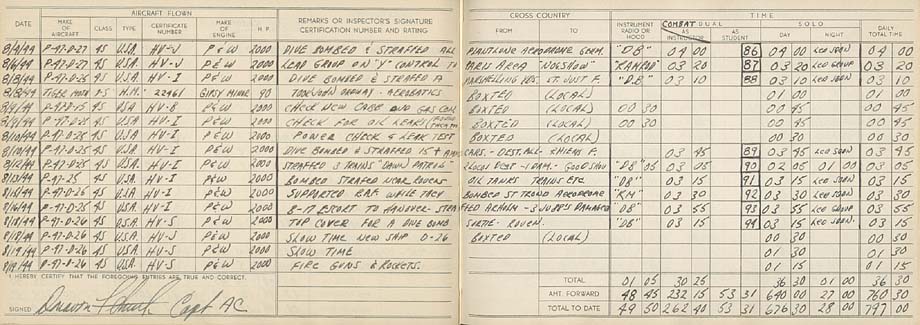 AIRCRAFT FLOWN
DATE MAKE OF AIRCRAFT CLASS TYPE CERTIFICATE NUMBER MAKE OF ENGINE H.P. REMARKS OR INSPECTOR'S SIGNATURE CERTIFICATION NUMBER AND RATING
8/4/44 P-47-D-27 4S U.S.A. HV-J P&W 2000 DIVE BOMBED & STRAFFED ALL
8/6/44 P-47-D-27 4S U.S.A. HV-J P&W 2000 LEAD GROUP ON "Y" CONTROL TO
8/8/44 P-47-D-25 4S U.S.A. HV-I P&W 2000 DIVE BOMBED & STRAFFED A
8/8/44 TIGER MOTH 1-S H.M. 22461 GIPSY MINOR 90 ACROBATICS
8/9/44 P-47-D-25 4S USA HV-8 P&W 2000 CHECK NEW CODE AND GAS
8/9/44 P-47-D-25 4S U.S.A. HV-I P&W 2000 CHECK FOR OIL LEAKS
8/10/44 P-47-D-25 4S U.S.A. HV-I P&W 2000 POWER CHECK & LEAK TEST
8/10/44 P-47-D-25 4S U.S.A. HV-I P&W 2000 DIVE BOMBED & STRAFFED 15+
8/12/44 P-47-D-25 4S U.S.A. HV-I P&W 2000 STRAFFED 3 TRAINS "DAWN PATROL"
8/13/44 P-47-25 4S U.S.A. HV-I P&W 2000 BOMBED STRAFED NEAR ROUEN
P-47-D-25 4S USA HV-I P&W 2000 SUPPORTED RAF WHILE THEY
8/16/44 P-47-D-25 4S U.S.A. HV-I P&W 2000 B-17 ESCORT TO HANOVER-
8/18/44 P-47-D-26 4S U.S.A. HV-S P&W 2000 TOP COVER FOR A DIVE BOMB
8/18/44 P-47-D-26 4S U.S.A. HV-S P&W 2000 SLOW TIME NEW SHIP D-26
8/19/44 P-47-D-26 4S U.S.A. HV-S P&W 2000 SLOW TIME
P-47-D-26 4S U.S.A. HV-S P&W 2000 FIRE GUNS & ROCKETS.
I HEREBY CERTIFY THAT THE FOREGOING ENTRIES ARE TRUE AND CORRECT.
SIGNED Capt AC
CROSS COUNTRY TIME
FROM TO INSTRUMENT RADIO OR HOOD COMBAT DUAL AS INSTRUCTOR AS STUDENT SOLO DAY NIGHT DAILY TOTAL TIME
AERODROME GERM. "DB" 04 00 86 04 00 LED SQDN 04 00
PARIS AREA "NOSHOW" "RAMROD" 03 20 87 03 20 LED GROUP 03 20
ST. JUST F. "D.B." 03 10 88 03 10 LED SQDN 03 10
BOXTED (LOCAL) 01 00 01 00
BOXTED (LOCAL) 00 30 00 45 00 45
BOXTED (LOCAL) 00 30 00 45 00 45
BOXTED (LOCAL) 00 30 00 30
CARS. 03 45 89 03 45 LED SQDN 03 45
"DB" 03 05 90 02 05 01 00 03 05
OIL TANKS TRAINS ETC. "DB" 03 15 91 03 15 LED SQDN 03 15
BOMBED ST TROND AERODROME 03 30 92 03 30 LED SQDN 03 30
3 JU88'S DAMAGED "DB" 03 55 93 03 55 LED GROUP 03 55
ROUEN. "DB" 03 15 94 03 15 LED SQDN. 03 15
BOXTED (LOCAL) 00 30 00 30
01 30 01 30
01 15 01 15
TOTAL 01 05 30 25 36 30 01 00 36 30
AMT. FORWARD 48 45 232 15 53 31 640 00 27 00 760 30
TOTAL TO DATE 49 50 262 40 53 31 676 30 28 00 797 00